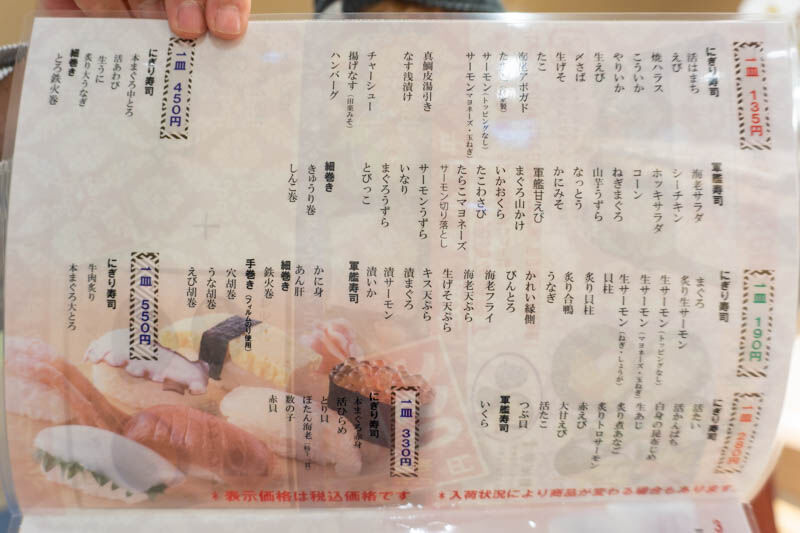 一皿 135円
にぎり寿司
活はまち
えび
焼ハラス
こういか
やりいか
生えび
〆さば
生げそ
たこ
海老アボガド
サーモン(トッピングなし)
サーモン(マヨネーズ・玉ねぎ)
真鯛皮湯引き
なす浅漬け
チャーシュー
揚げなす(田楽みそ)
ハンバーグ
軍艦寿司
海老サラダ
シーチキン
ホッキサラダ
コーン
ねぎまぐろ
山芋うずら
なっとう
かにみそ
軍艦甘えび
まぐろ山かけ
いかおくら
たこわさび
たらこマヨネーズ
サーモン切り落とし
サーモンうずら
いなり
まぐろうずら
とびっこ
細巻き
きゅうり巻
しんこ巻
一皿 190円
にぎり寿司
まぐろ
炙り生サーモン
生サーモン(トッピングなし)
生サーモン(マヨネーズ・玉ねぎ)
生サーモン(ねぎ・しょうが)
貝柱
炙り貝柱
炙り合鴨
うなぎ
かれい縁側
びんとろ
海老フライ
海老天ぷら
生げそ天ぷら
キス天ぷら
漬まぐろ
漬サーモン
漬いか
軍艦寿司
かに身
あん肝
細巻き
鉄火巻
手巻き(フィルムのり使用)
穴胡巻
うな胡巻
えび胡巻
一皿 280円
にぎり寿司
活たい
活かんぱち
白身の昆布じめ
生あじ
炙り煮あなご
炙りトロサーモン
赤えび
大甘えび
活たこ
つぶ貝
軍艦寿司
いくら
一皿 330円
にぎり寿司
本まぐろ赤身
活ひらめ
とり貝
ぼたん海老
数の子
赤貝
一皿 450円
にぎり寿司
本まぐろ中とろ
活あわび
生うに
炙り大うなぎ
細巻き
とろ鉄火巻
一皿 550円
にぎり寿司
牛肉炙り
本まぐろ大とろ
*表示価格は税込価格です
*入荷状況により商品が変わる場合もあります。